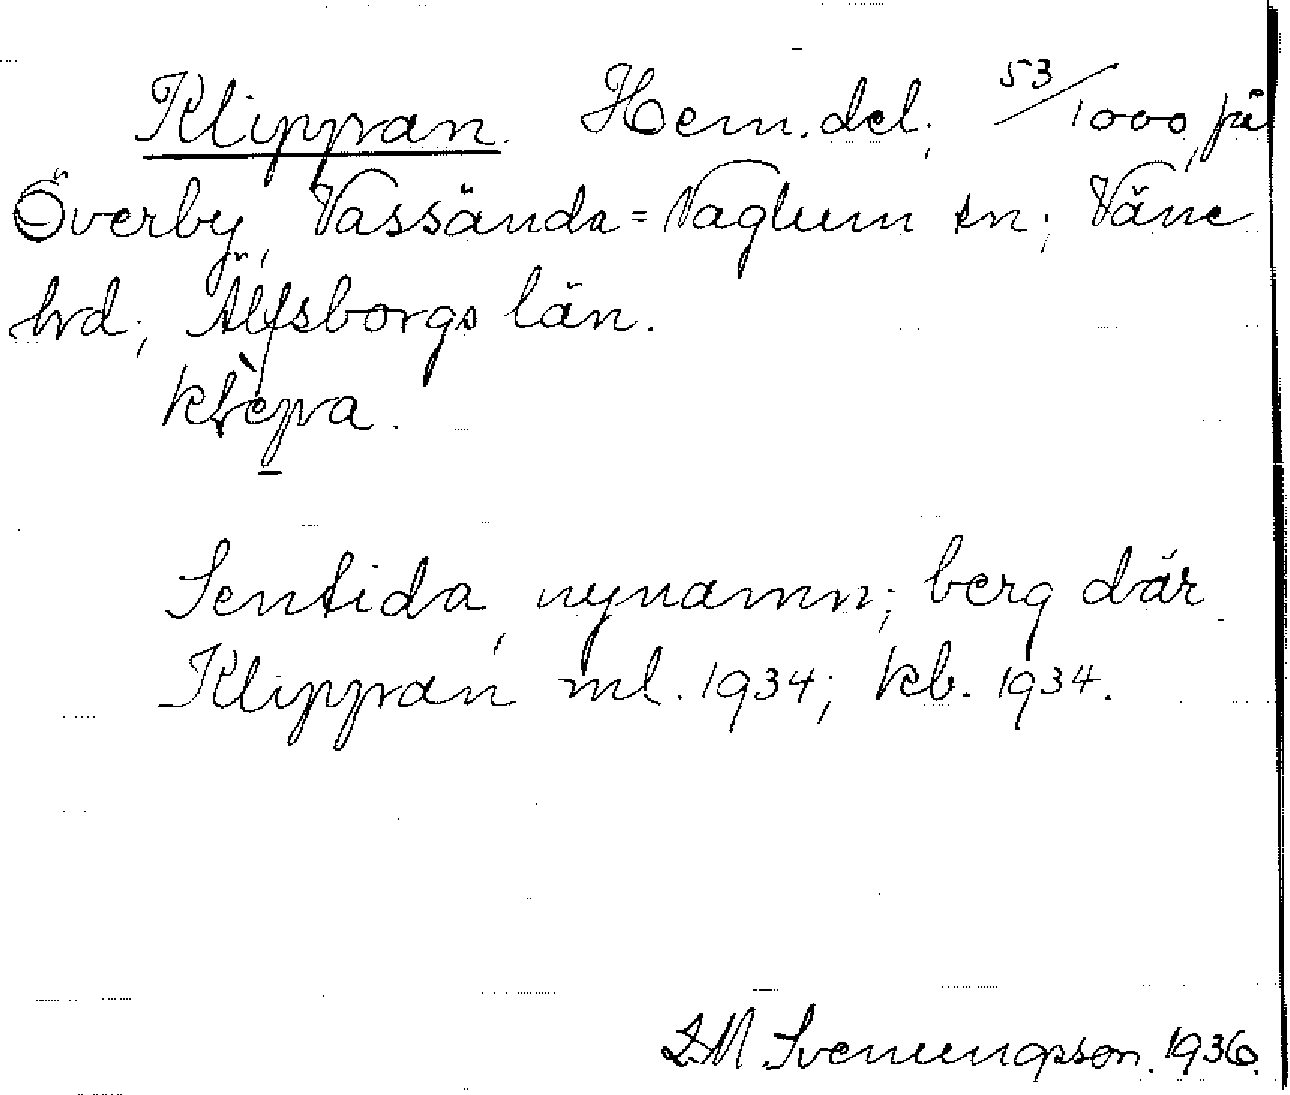 Klippran. Hem.del; 53/1000, på
Överby, Vassända=Naglum sn; Väne
hrd; Älfsborgs län.
klèpra.
Sentida, nynamn; berg där.
Klippran ml. 1934; kb. 1934.
D.M. Svenungsson. 1936.